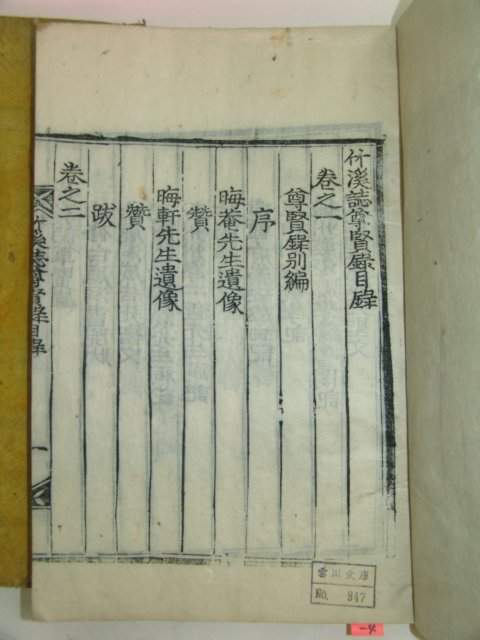 竹溪誌尊賢錄目錄
卷之一
尊賢錄別編
序
晦菴先生遺像
贊
晦軒先生遺像
贊
跋
卷之二
竹溪誌尊賢錄目錄
一
文庫
No. 947
-4